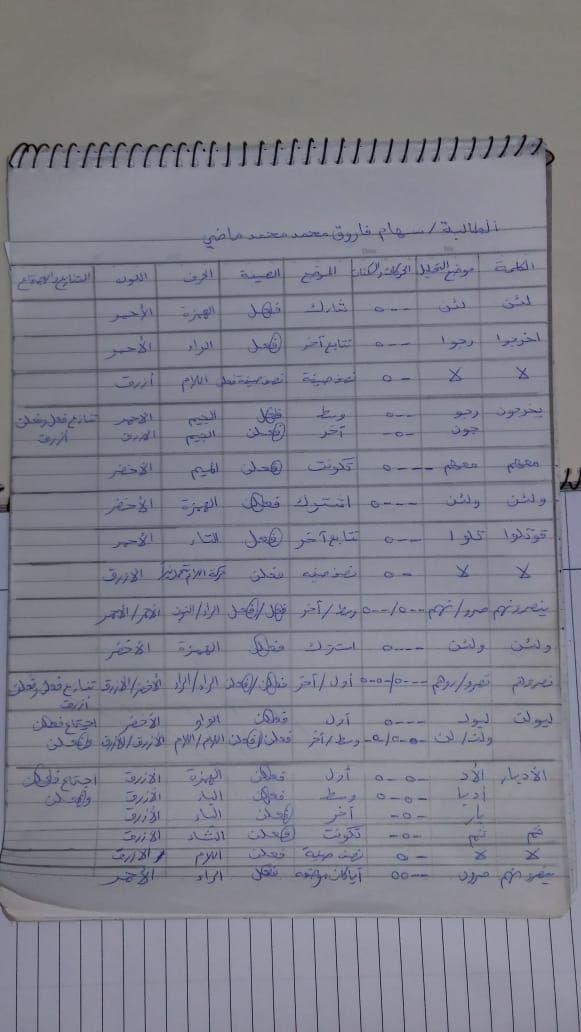 الطالبة / سهام فاروق محمد محمد ماضي
الكلمة موضع التحليل الحركات والسكنات الموضع الصيغة الحرف اللون التنازع والاجتماع
لئن لئن ---o تشارك فعل الهمزة الأحمر
اخرجوا رجوا ---o تتابع آخر فعل الراء الأحمر
لا لا -o نصف صيغة نصف صيغة فعلن اللام أزرق
يخرجون رجو ---o وسط فعل الجيم الأحمر تنازع فعل وفعلن
جون -o- آخر فعلن الجيم الأزرق أزرق
معهم معهم ----o تكونت فعلن الميم الأخضر
ولئن ولئن ----o اشترك فعلن الهمزة الأخضر
قوتلوا تلوا ---o تتابع آخر فعل التاء الأحمر
لا لا -o نصف صيغة فعلن الأزرق
ينصرونهم صرو/نهم ---o/---o وسط/آخر فعل/فعل الراء/النون الأحمر/الأحمر
ولئن ولئن ----o اشترك فعلن الهمزة الأخضر
نصروهم نصرو/روهم ----o/-o-o أول/آخر فعلن/فعلن الراء/الراء الأخضر/الأزرق تنازع فعل وفعلن
أزرق
ليولن ليول ----o أول فعلن الواو الأخضر اجتماع فعلن
ولن/لن وسط/آخر فعلن/فعلن اللام/اللام الأزرق/الأزرق وفعلن
الأدبار الأد -o-o أول فعلن الهمزة الأزرق اجتماع فعلن
أدبا -o-o وسط فعلن الباء الأزرق وفعلن
بار -o- آخر فعلن الباء الأزرق
ثم ثم -o- تكونت فعلن الثاء الأزرق
لا لا -o نصف صيغة فعلن اللام الأزرق
ينصرونهم صرون --oo فعل الراء الأحمر